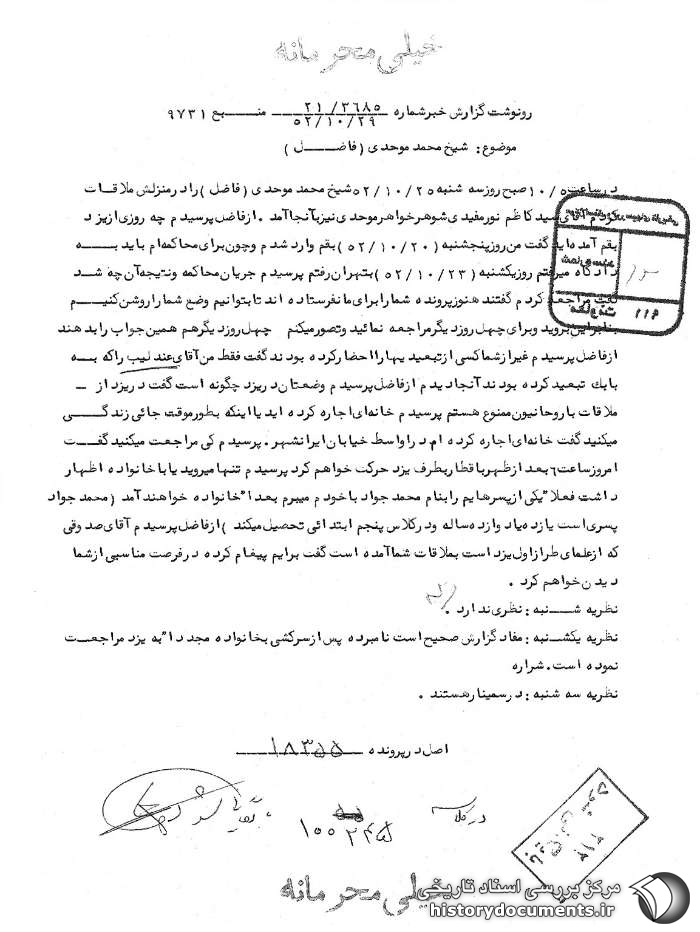 خیلی محرمانه
رونوشت گزارش خبر شماره ۲۱/۳۶۸۵ منبع ۹۷۳۱
۵۲/۱۰/۲۹
موضوع: شیخ محمد موحدی (فاضل)
در ساعت ۱۰/۵ صبح روز سه شنبه ۵۲/۱۰/۲۵ شیخ محمد موحدی (فاضل) را در منزلش ملاقات
کردم آقای سید کاظم نور مفیدی شوهر خواهر موحدی نیز بآنجا آمد. از فاضل پرسیدم چه روزی از یزد
بقم آمده اید گفت من روز پنجشنبه (۵۲/۱۰/۲۰) بقم وارد شدم و چون برای محاکمه ام باید به
دادگاه میرفتم روز یکشنبه (۵۲/۱۰/۲۳) بتهران رفتم پرسیدم جریان محاکمه و نتیجه آن چه شد
گفت مراجعه کردم گفتند هنوز پرونده شما را برای ما نفرستاده اند تا بتوانیم وضع شما را روشن کنیم
بنابراین بروید و برای چهل روز دیگر مراجعه نمائید و تصور میکنم چهل روز دیگر هم همین جواب را بدهند
از فاضل پرسیدم غیر از شما کسی از تبعیدیها را احضار کرده بودند گفت فقط من آقای عندلیب را که به
بابك تبعید کرده بودند آنجا دیدم از فاضل پرسیدم وضعتان در یزد چگونه است گفت در یزد از
ملاقات با روحانیون ممنوع هستم پرسیدم خانه ای اجاره کرده اید یا اینکه بطور موقت جائی زندگی
میکنید گفت خانه ای اجاره کرده ام در اواسط خیابان ایرانشهر. پرسیدم کی مراجعت میکنید گفت
امروز ساعت ۶ بعد از ظهر با قطار بطرف یزد حرکت خواهم کرد پرسیدم تنها میروید یا با خانواده اظهار
داشت فعلاً یکی از پسرهایم را بنام محمد جواد با خودم میبرم بعداً خانواده خواهند آمد (محمد جواد
پسری است یازده یا دوازده ساله و در کلاس پنجم ابتدائی تحصیل میکند) از فاضل پرسیدم آقای صدوقی
که از علمای طراز اول یزد است بملاقات شما آمده است گفت برایم پیغام کرده در فرصت مناسبی از شما
دیدن خواهم کرد.
نظریه شنبه: نظری ندارد.
نظریه یکشنبه: مفاد گزارش صحیح است نامبرده پس از سرکشی بخانواده مجدداً به یزد مراجعت
نموده است. شراره
نظریه سه شنبه: در سمینار هستند.
اصل در پرونده ۱۸۳۵۵
در کلاسه
۱۰۰۲۴۵
بایگانی شود
۳۱۲
خیلی محرمانه
مرکز بررسی اسناد تاریخی
historydocuments.ir